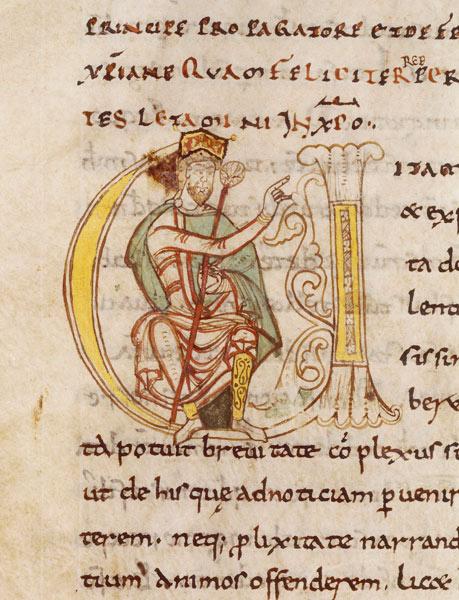 PRINCIPE PROPAGATORE ET DEFE
XPIANE QUAM FELICITER REP PER
TES LETAMINI IN XPO·
ITAM
& exp
ta do
lenti
sissim
bere
ta potuit breuitate cōplexus s
ut de his quę ad noticiam ꝑuenir
terem. neq; ꝓlixitate narrand
tium animos offenderem. lic&